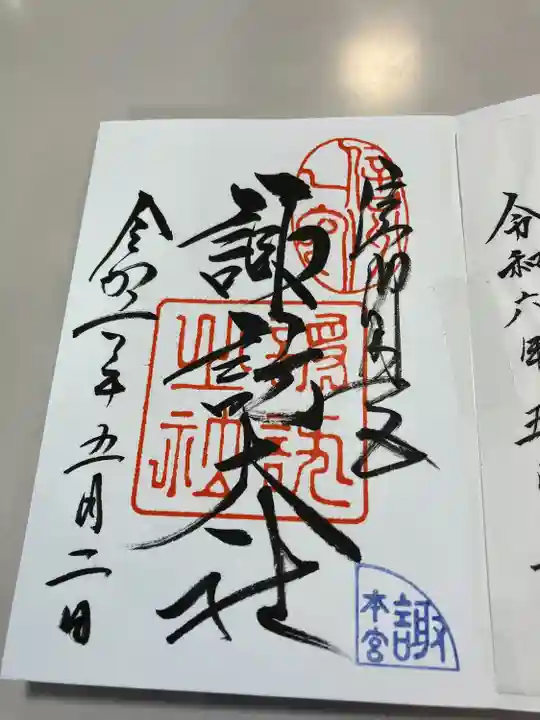 諏訪大社
令和六年五月二日
信濃國
一宮
諏訪
之社
諏
本宮
令和六年五